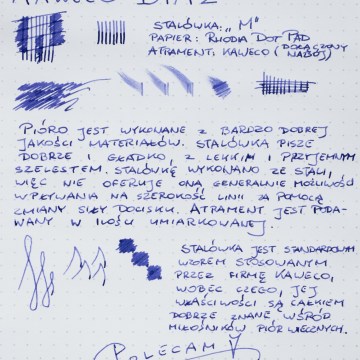 KAWECO
STALÓWKA: „M”
PAPIER: RHODIA DOT PAD
ATRAMENT: KAWECO (DOŁĄCZONY
NABÓJ)
PIÓRO JEST WYKONANE Z BARDZO DOBREJ
JAKOŚCI MATERIAŁÓW. STALÓWKA PISZE
DOBRZE I GŁADKO, Z LEKKIM I PRZYJEMNYM
SZELESTEM. STALÓWKĘ WYKONANO ZE STALI,
WIĘC NIE OFERUJE ONA GENERALNIE MOŻLIWOŚCI
WPŁYWANIA NA SZEROKOŚĆ LINII ZA POMOCĄ
ZMIANY SIŁY DOCISKU. ATRAMENT JEST PODA-
WANY W ILOŚCI UMIARKOWANEJ.
STALÓWKA JEST STANDARDOWYM
WZOREM STOSOWANYM
PRZEZ FIRMĘ KAWECO,
WOBEC CZEGO, JEJ
WŁAŚCIWOŚCI SĄ CAŁKIEM
DOBRZE ZNANE WŚRÓD
MIŁOŚNIKÓW PIÓR WIECZNYCH.
POLECAM